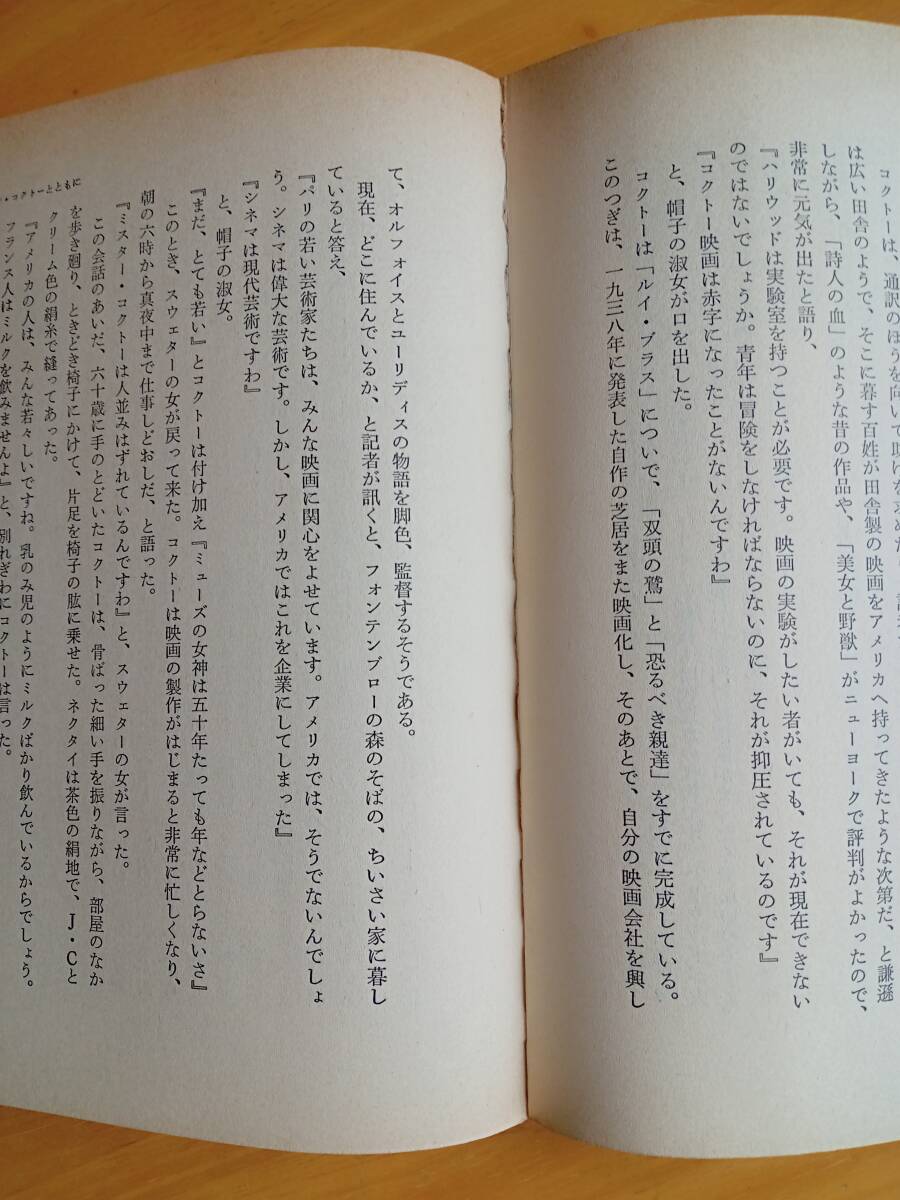 コクトーは、通訳のほうを向いて助けを求めた。
は広い田舎のようで、そこに暮す百姓が田舎製の映画をアメリカへ持ってきたような次第だ、と謙遜
しながら、「詩人の血」のような昔の作品や、「美女と野獣」がニューヨークで評判がよかったので、
非常に元気が出たと語り、
『ハリウッドは実験室を持つことが必要です。映画の実験がしたい者がいても、それが現在できない
のではないでしょうか。青年は冒険をしなければならないのに、それが抑圧されているのです』
『コクトー映画は赤字になったことがないんですわ』
と、帽子の淑女が口を出した。
コクトーは「ルイ・ブラス」についで、「双頭の鷲」と「恐るべき親達」をすでに完成している。
このつぎは、一九三八年に発表した自作の芝居をまた映画化し、そのあとで、自分の映画会社を興し
て、オルフォイスとユーリディスの物語を脚色、監督するそうである。
現在、どこに住んでいるか、と記者が訊くと、フォンテンブローの森のそばの、ちいさい家に暮し
ていると答え、
『パリの若い芸術家たちは、みんな映画に関心をよせています。アメリカでは、そうでないんでしょ
う。シネマは偉大な芸術です。しかし、アメリカではこれを企業にしてしまった』
『シネマは現代芸術ですわ』
と、帽子の淑女。
『まだ、とても若い』とコクトーは付け加え『ミューズの女神は五十年たっても年などとらないさ』
このとき、スウェターの女が戻って来た。コクトーは映画の製作がはじまると非常に忙しくなり、
朝の六時から真夜中まで仕事しどおしだ、と語った。
『ミスター・コクトーは人並みはずれているんですわ』と、スウェターの女が言った。
この会話のあいだ、六十歳に手のとどいたコクトーは、骨ばった細い手を振りながら、部屋のなか
を歩き廻り、ときどき椅子にかけて、片足を椅子の肱に乗せた。ネクタイは茶色の絹地で、J・Cと
クリーム色の絹糸で縫ってあった。
『アメリカの人は、みんな若々しいですね。乳のみ児のようにミルクばかり飲んでいるからでしょう。
フランス人はミルクを飲みませんよ』と、別れぎわにコクトーは言った。
・コクトーとともに